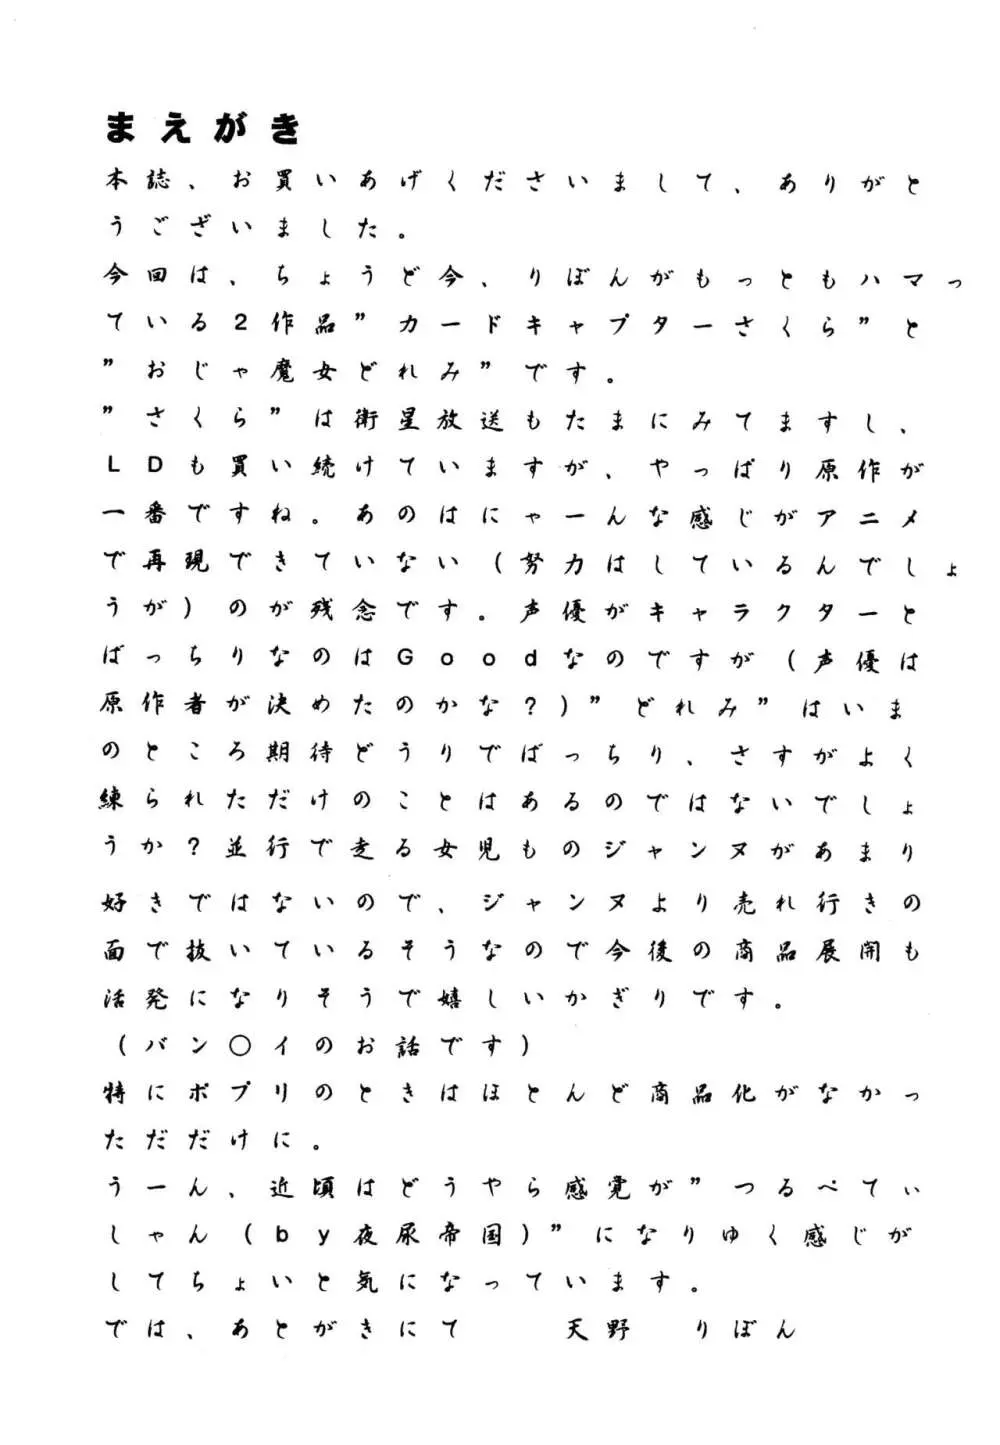 まえがき
本誌、お買いあげくださいまして、ありがと
うございました。
今回は、ちょうど今、りぼんがもっともハマっ
ている2作品”カードキャプターさくら”と
”おじゃ魔女どれみ”です。
”さくら”は衛星放送もたまにみてますし、
LDも買い続けていますが、やっぱり原作が
一番ですね。あのはにゃーんな感じがアニメ
で再現できていない(努力はしているんでしょ
うが)のが残念です。声優がキャラクターと
ばっちりなのはGoodなのですが(声優は
原作者が決めたのかな?)”どれみ”はいま
のところ期待どうりでばっちり、さすがよく
練られただけのことはあるのではないでしょ
うか?並行で走る女児ものジャンヌがあまり
好きではないので、ジャンヌより売れ行きの
面で抜いているそうなので今後の商品展開も
活発になりそうで嬉しいかぎりです。
(バン〇イのお話です)
特にポプリのときはほとんど商品化がなかっ
ただだけに。
うーん、近頃はどうやら感覚が”つるぺてぃ
しゃん(by夜尿帝国)”になりゆく感じが
してちょいと気になっています。
では、あとがきにて 天野 りぼん